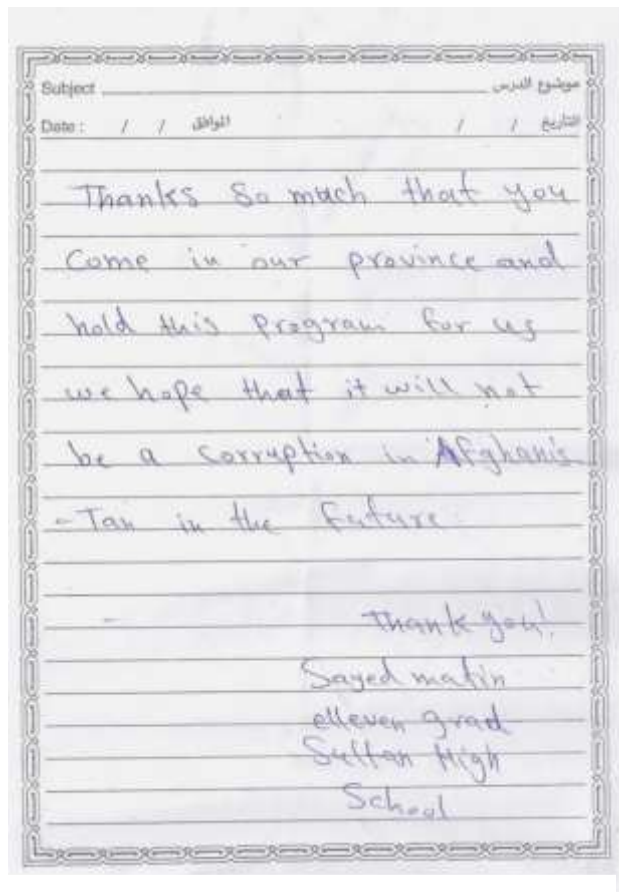 Subject موضوع الدرس
Date : / / الموافق / / التاريخ
Thanks So much that you
Come in our province and
hold this Program for us
we hope that it will not
be a Corruption in Afghanis
-Tan in the future.
Thank you!
Sayed matin
elleven grad
Sultan High
School